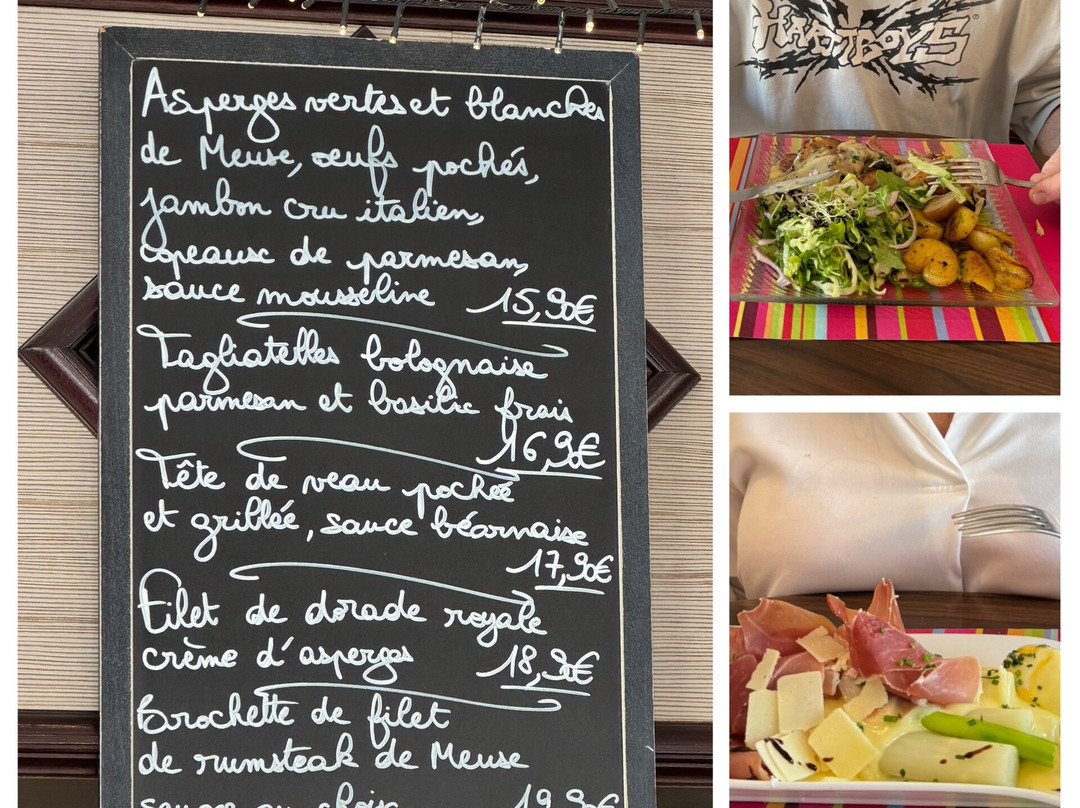 Asperges vertes et blanches
de Meuse, œufs pochés,
jambon cru italien,
copeaux de parmesan,
sauce mousseline 15,90€
Tagliatelles bolognaise
parmesan et basilic frais
16,90€
Tête de veau pochée
et grillée, sauce béarnaise
17,90€
Filet de dorade royale
crème d'asperges 18,90€
Brochette de filet
de rumsteak de Meuse
sauce au choix 19,90€